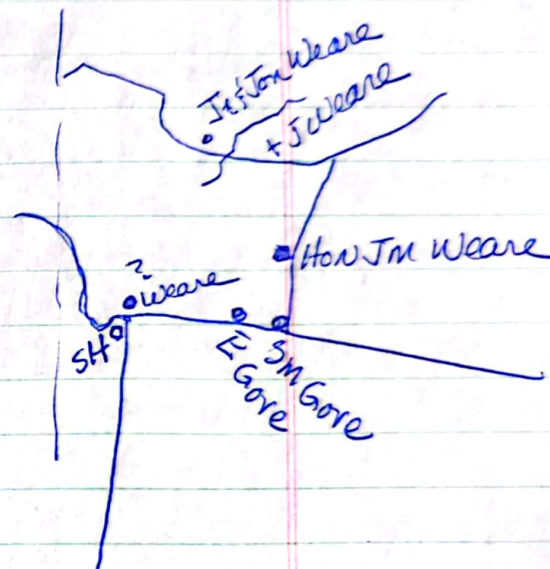 J & Jon Weare
+ J Weare
Hon J M Weare
?
Weare
SH
E Gore
S M Gore